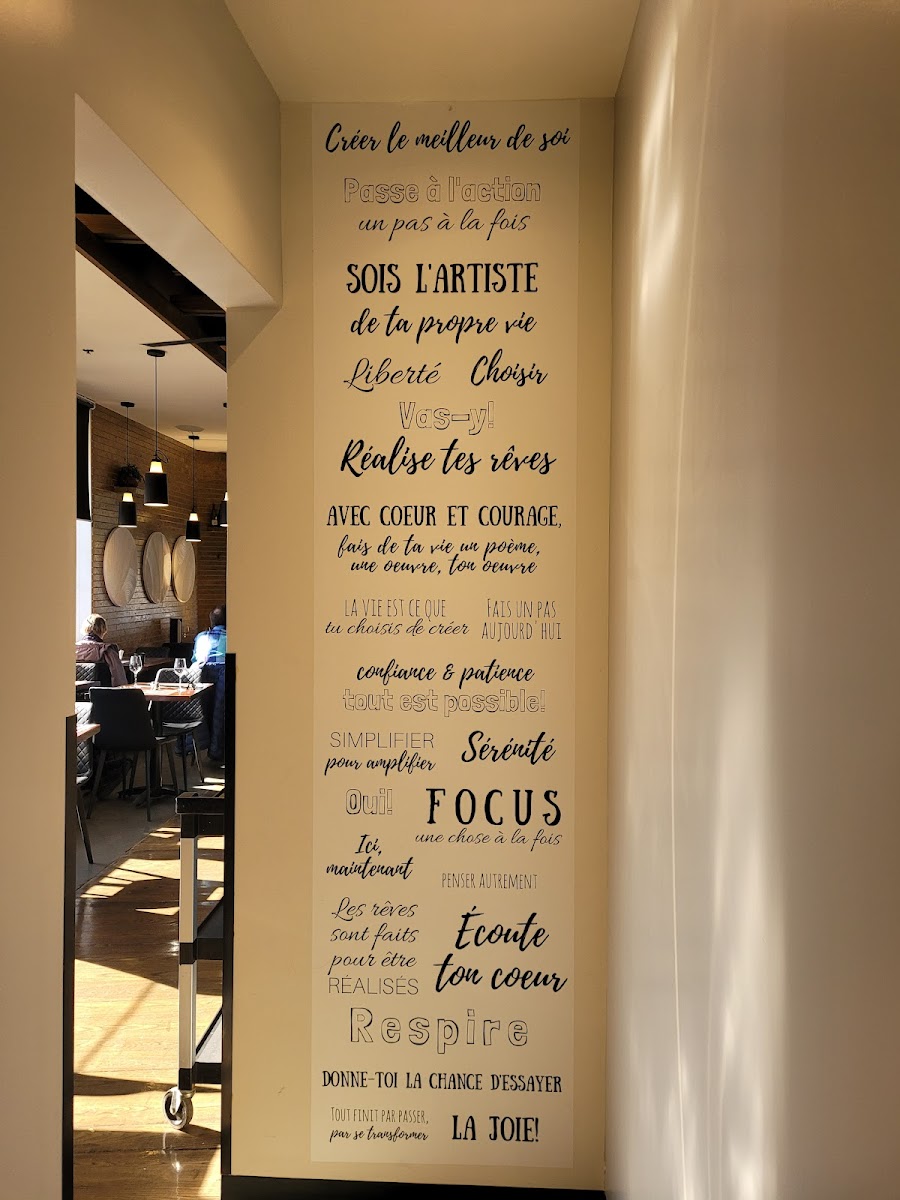 Créer le meilleur de soi
Passe à l'action
un pas à la fois
SOIS L'ARTISTE
de ta propre vie
Liberté Choisir
Vas-y!
Réalise tes rêves
AVEC COEUR ET COURAGE,
fais de ta vie un poème,
une oeuvre, ton oeuvre
LA VIE EST CE QUE
tu choisis de créer
FAIS UN PAS
AUJOURD'HUI
confiance & patience
tout est possible!
SIMPLIFIER
pour amplifier
Sérénité
Oui!
FOCUS
une chose à la fois
Ici,
maintenant
PENSER AUTREMENT
Les rêves
sont faits
pour être
RÉALISÉS
Écoute
ton coeur
Respire
DONNE-TOI LA CHANCE D'ESSAYER
TOUT FINIT PAR PASSER,
par se transformer
LA JOIE!